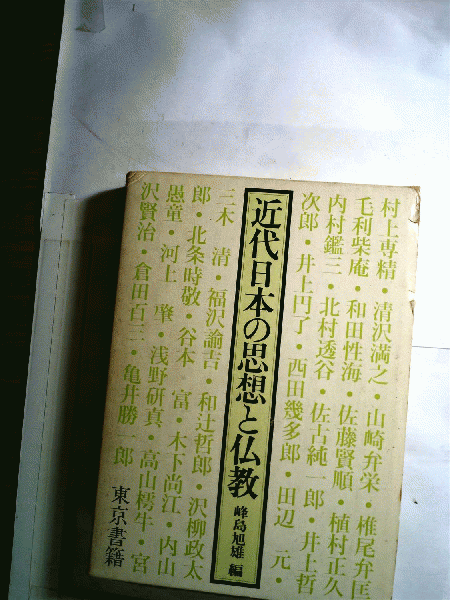 村上専精・清沢満之・山崎弁栄・椎尾弁匡
毛利柴庵・和田性海・佐藤賢順・植村正久
内村鑑三・北村透谷・佐古純一郎・井上哲
次郎・井上円了・西田幾多郎・田辺 元・
近代日本の思想と仏教
峰島旭雄 編
三木 清・福沢諭吉・和辻哲郎・沢柳政太
郎・北条時敬・谷本 富・木下尚江・内山
愚童・河上 肇・浅野研真・高山樗牛・宮
沢賢治・倉田百三・亀井勝一郎
東京書籍